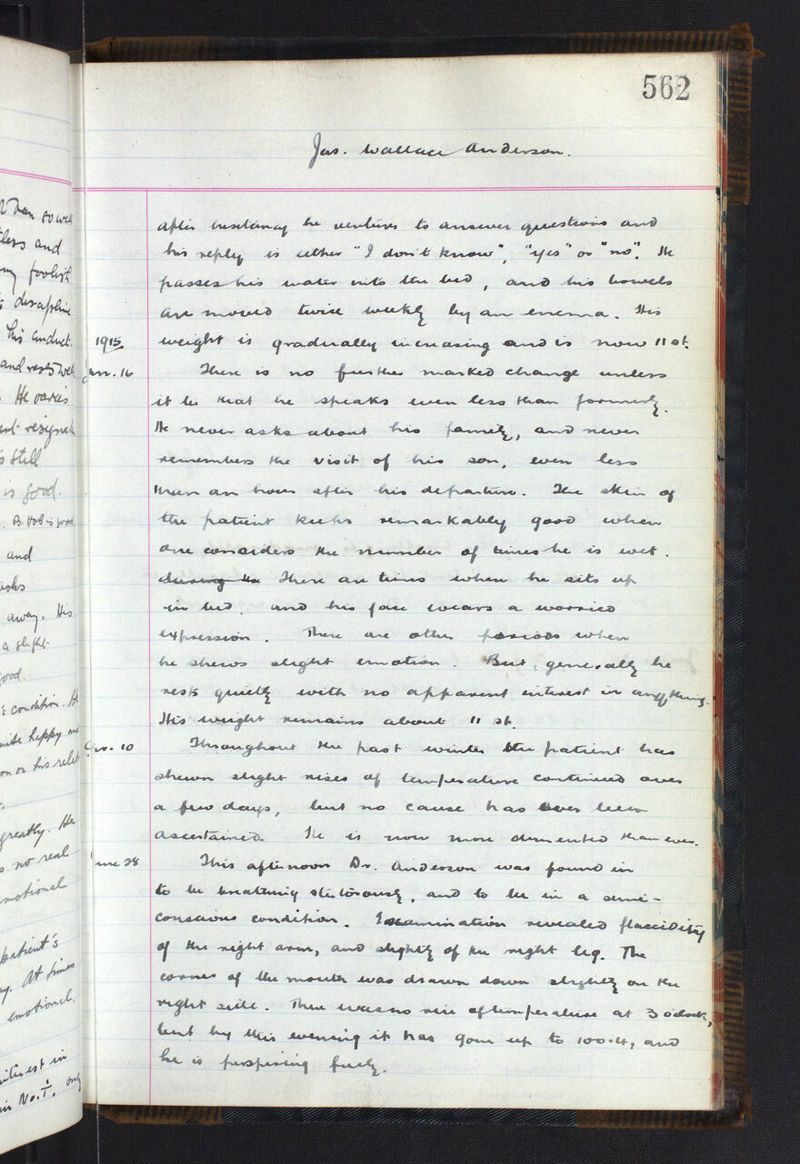 562
Jas. Wallace Anderson.
after hesitancy he ventures to answer questions and
his reply is either "I don't know", "yes" or "no". He
passes his water into the bed, and his bowels
are moved twice weekly by an enema. His
1915 weight is gradually increasing and is now 11 st.
Jan. 16 There is no further marked change unless
it be that he speaks even less than formerly.
He never asks about his family, and never
remembers the visit of his son, even less
than an hour after his departure. The skin of
the patient keeps remarkably good when
one considers the number of times he is wet.
during the There are times when he sits up
in bed, and his face wears a worried
expression. There are other periods when
he shews slight emotion. But, generally he
rests quietly with no apparent interest in anything.
His weight remains about 11 st.
10 Throughout the past winter the patient has
shewn slight rises of temperature continued over
a few days, but no cause has ever been
ascertained. He is now more demented than ever.
June 28 This afternoon Dr. Anderson was found in
to be breathing stertorously, and to be in a semi-
conscious condition. Examination revealed flaccidity
of the right arm, and slightly of the right leg. The
corner of the mouth was drawn down slightly on the
right side. There was no rise of temperature at 3 o'clock,
but by this evening it has gone up to 100.4, and
he is perspiring freely.
so well
and
foolish
discipline
his conduct.
and rests well
He varies
still
is good.
and
asks
away. His
a slight
good
condition. H
happy
on his
greatly. He
no real
emotional
patient's
At times
emotional.
interest in
in No. 1. only